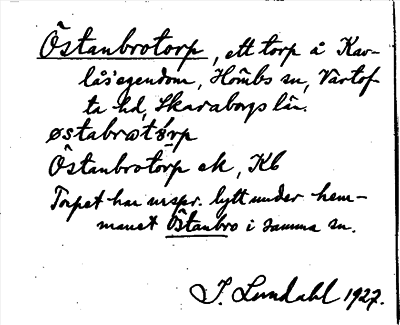 Östanbrotorp, ett torp å Kav-
lås' egendom, Hömbs sn, Vartof-
ta hd, Skaraborgs län.
østabrωtó̀rp
Östanbrotorp ek, Kb
Torpet har urspr. lytt under hem-
manet Östanbro i samma sn.
J. Lundahl 1927.